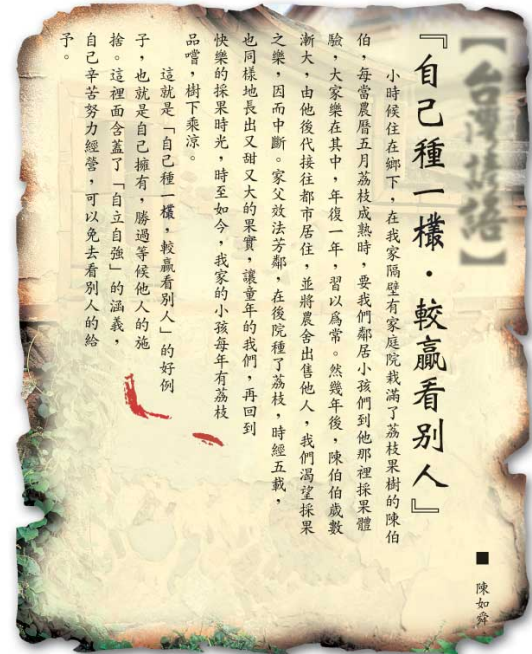 【台灣諺語】
『自己種一欉．較贏看別人』
■ 陳如舜
小時候住在鄉下，在我家隔壁有家庭院栽滿了荔枝果樹的陳伯
伯，每當農曆五月荔枝成熟時，要我們鄰居小孩們到他那裡採果體
驗，大家樂在其中，年復一年，習以為常。然幾年後，陳伯伯歲數
漸大，由他後代接往都市居住，並將農舍出售他人，我們渴望採果
之樂，因而中斷。家父效法芳鄰，在後院種了荔枝，時經五載，
也同樣地長出又甜又大的果實，讓童年的我們，再回到
快樂的採果時光，時至如今，我家的小孩每年有荔枝
品嚐，樹下乘涼。
這就是「自己種一欉，較贏看別人」的好例
子，也就是自己擁有，勝過等候他人的施
捨。這裡面含蓋了「自立自強」的涵義，
自己辛苦努力經營，可以免去看別人的給
予。